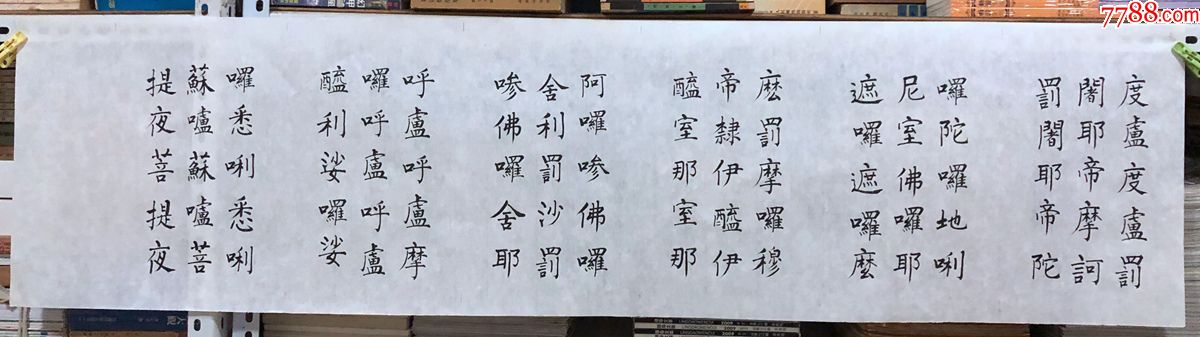 度盧度盧罰
闍耶帝摩訶
罰闍耶帝陀
囉陀囉地唎
尼室佛囉耶
遮囉遮囉麼
麼罰摩囉穆
帝隸伊醯伊
醯室那室那
阿囉嘇佛囉
舍利罰沙罰
嘇佛囉舍耶
呼盧呼盧摩
囉呼盧呼盧
醯利娑囉娑
囉悉唎悉唎
蘇嚧蘇嚧菩
提夜菩提夜
7788.com